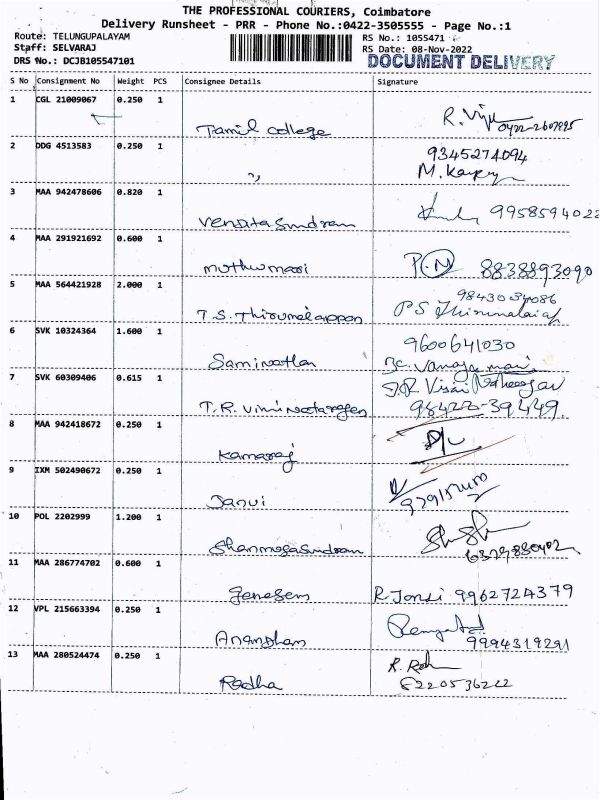 THE PROFESSIONAL COURIERS, Coimbatore
Delivery Runsheet - PRR - Phone No.:0422-3505555 - Page No.:1
Route: TELUNGUPALAYAM RS No.: 1055471
Staff: SELVARAJ RS Date: 08-Nov-2022
DRS No.: DCJB105547101 DOCUMENT DELIVERY
S No Consignment No Weight PCS Consignee Details Signature
1 CGL 21009067 0.250 1
Tamil College R. 0422-2607995
2 DDG 4513583 0.250 1 9345274094
,, M.
3 MAA 942478606 0.820 1
9958594022
4 MAA 291921692 0.600 1
muthumari P.M 8838893090
5 MAA 564421928 2.000 1 9843034086
T.S. Thirumalaippan PS Thirumalaiap
6 SVK 10324364 1.600 1 9600641030
Saminathan
7 SVK 60309406 0.615 1
T.R. 98422-39449
8 MAA 942418672 0.250 1 D/L
Kamaraj
9 IXM 502490672 0.250 1
Janvi
10 POL 2202999 1.200 1
Shanmugasundram
11 MAA 286774702 0.600 1
Genesem R. Jonsi 9962724379
12 VPL 215663394 0.250 1
Anandham 9994319291
13 MAA 280524474 0.250 1
Radha 8220536222